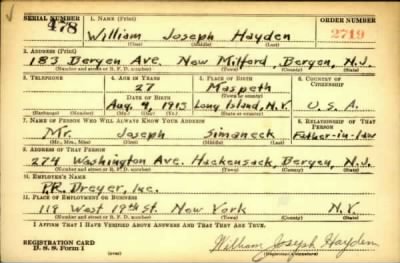 SERIAL NUMBER 1. NAME (Print) ORDER NUMBER
478 William Joseph Hayden 2719
(First) (Middle) (Last)
2. ADDRESS (Print)
183 Bergen Ave. New Milford, Bergen, N.J.
(Number and street or R. F. D. number) (Town) (County) (State)
3. TELEPHONE 4. AGE IN YEARS 5. PLACE OF BIRTH 6. COUNTRY OF CITIZENSHIP
27 Maspeth
DATE OF BIRTH (Town or county)
Aug. 9, 1913 Long Island, N.Y. U.S.A.
(Exchange) (Number) (Mo.) (Day) (Yr.) (State or country)
7. NAME OF PERSON WHO WILL ALWAYS KNOW YOUR ADDRESS 8. RELATIONSHIP OF THAT PERSON
Mr. Joseph Simaneck Father-in-law
(Mr., Mrs., Miss) (First) (Middle) (Last)
9. ADDRESS OF THAT PERSON
274 Washington Ave. Hackensack, Bergen, N.J.
(Number and street or R. F. D. number) (Town) (County) (State)
10. EMPLOYER'S NAME
P.R. Dreyer, Inc.
11. PLACE OF EMPLOYMENT OR BUSINESS
119 West 19th St. New York N.Y.
(Number and street or R. F. D. number) (Town) (County) (State)
I AFFIRM THAT I HAVE VERIFIED ABOVE ANSWERS AND THAT THEY ARE TRUE.
REGISTRATION CARD
D. S. S. Form 1 William Joseph Hayden
(Registrant's signature)